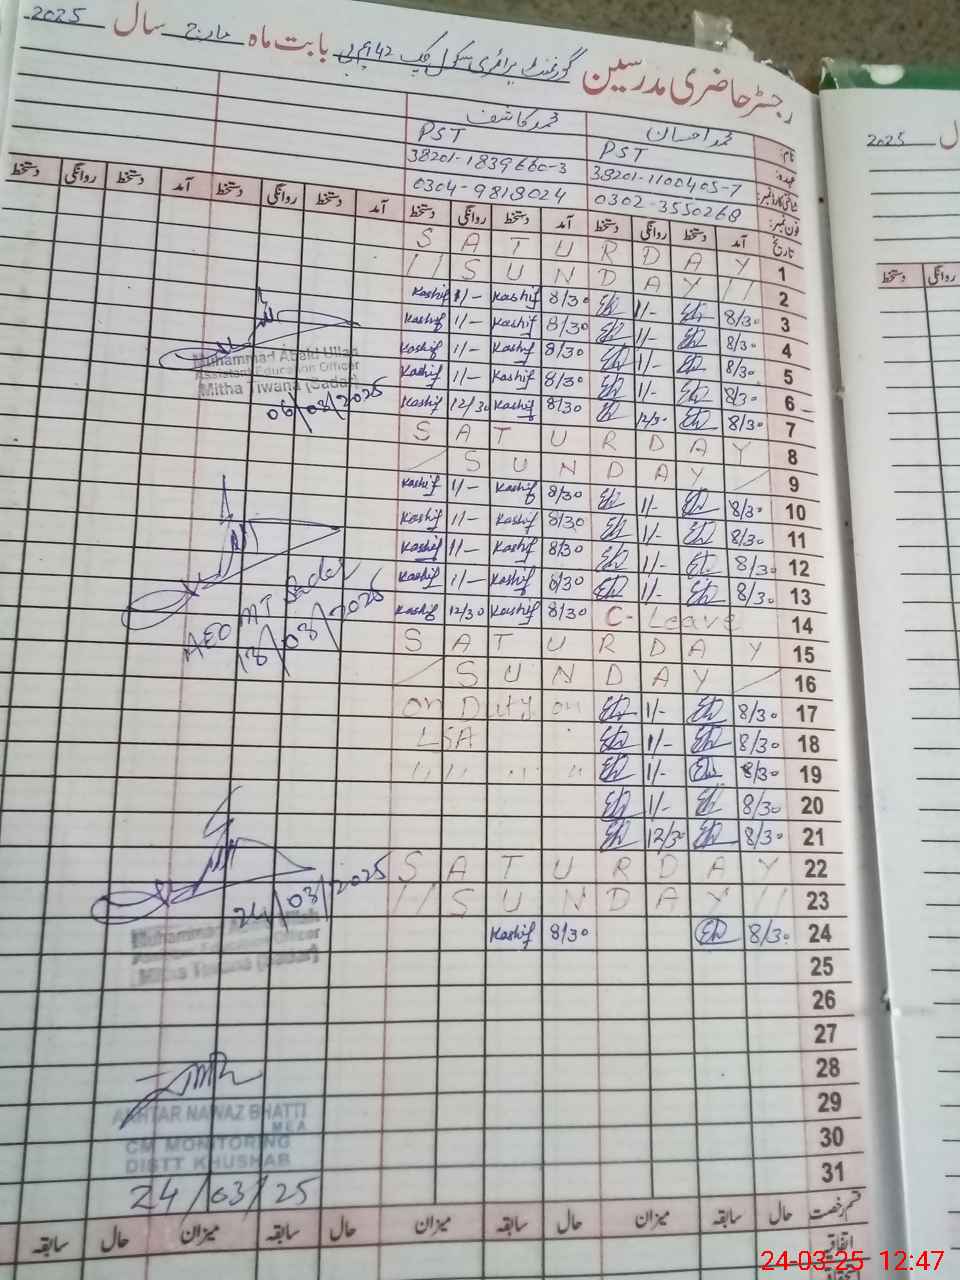 رجسٹر حاضری مدرسین گورنمنٹ پرائمری سکول چک 42 ایم بی بابت ماہ مارچ سال 2025
نام: محمد احسان محمد کاشف
عہدہ: PST PST
شناختی کارڈ نمبر: 38201-1100405-7 38201-1839660-3
فون نمبر: 0302-3550268 0304-9818024
تاریخ آمد دستخط روانگی دستخط آمد دستخط روانگی دستخط آمد دستخط روانگی دستخط آمد دستخط روانگی دستخط
S A T U R D A Y 1
// S U N D A Y // 2
Kashif 1/- Kashif 8/30 1/- 8/30 3
Kashif 1/- Kashif 8/30 1/- 8/30 4
Kashif 1/- Kashif 8/30 1/- 8/30 5
Kashif 1/- Kashif 8/30 1/- 8/30 6
Kashif 12/30 Kashif 8/30 12/30 8/30 7
S A T U R D A Y 8
S U N D A Y 9
Kashif 1/- Kashif 8/30 1/- 8/30 10
Kashif 1/- Kashif 8/30 1/- 8/30 11
Kashif 1/- Kashif 8/30 1/- 8/30 12
Kashif 1/- Kashif 8/30 1/- 8/30 13
Kashif 12/30 Kashif 8/30 C-Leave 14
S A T U R D A Y 15
S U N D A Y 16
on Duty on 1/- 8/30 17
LSA 1/- 8/30 18
" " " 1/- 8/30 19
1/- 8/30 20
12/30 8/30 21
S A T U R D A Y 22
// S U N D A Y // 23
Kashif 8/30 8/30 24
25
26
27
28
29
30
31
Muhammad Abaid Ullah
Assistant Education Officer
Mitha Tiwana (Sadar)
06/03/2025
AEO MT Sadar
13/03/2025
24/03/2025
Muhammad Abaid Ullah
Assistant Education Officer
Mitha Tiwana (Sadar)
AKHTAR NAWAZ BHATTI
MEA
CM MONITORING
DISTT KHUSHAB
24/03/25
قسم رخصت حال سابقہ میزان حال سابقہ میزان حال سابقہ میزان حال سابقہ
اتفاقیہ
2025
روانگی دستخط
24-03-25 12:47